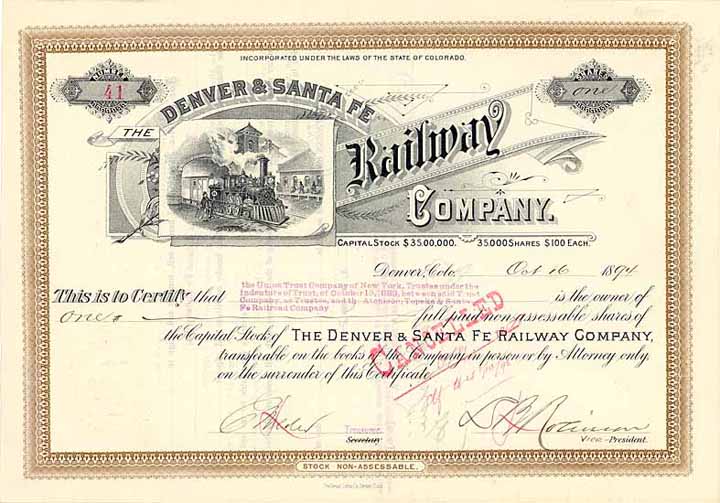 INCORPORATED UNDER THE LAWS OF THE STATE OF COLORADO.
NUMBER
41
SHARES
one
THE
DENVER & SANTA FE
Railway
COMPANY.
CAPITAL STOCK $3500,000. 35000 SHARES $100 EACH.
Denver, Colo. Oct 16 1894
This is to Certify that
the Union Trust Company of New York, Trustee under the
Indenture of Trust, of October 19, between said Trust
Company, as Trustee, and the Atchison, Topeka & Santa
Fe Railroad Company
is the owner of
one
full paid non-assessable shares of
the Capital Stock of THE DENVER & SANTA FE RAILWAY COMPANY,
transferable on the books of the Company in person or by Attorney only,
on the surrender of this Certificate.
CANCELLED
Treasurer
Secretary
D B Robinson
Vice-President.
STOCK NON-ASSESSABLE.